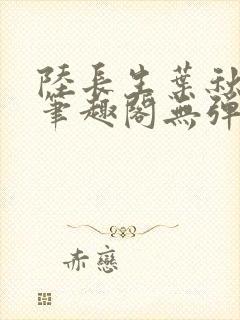 陸長生葉秋
筆趣閣無彈
赤戀